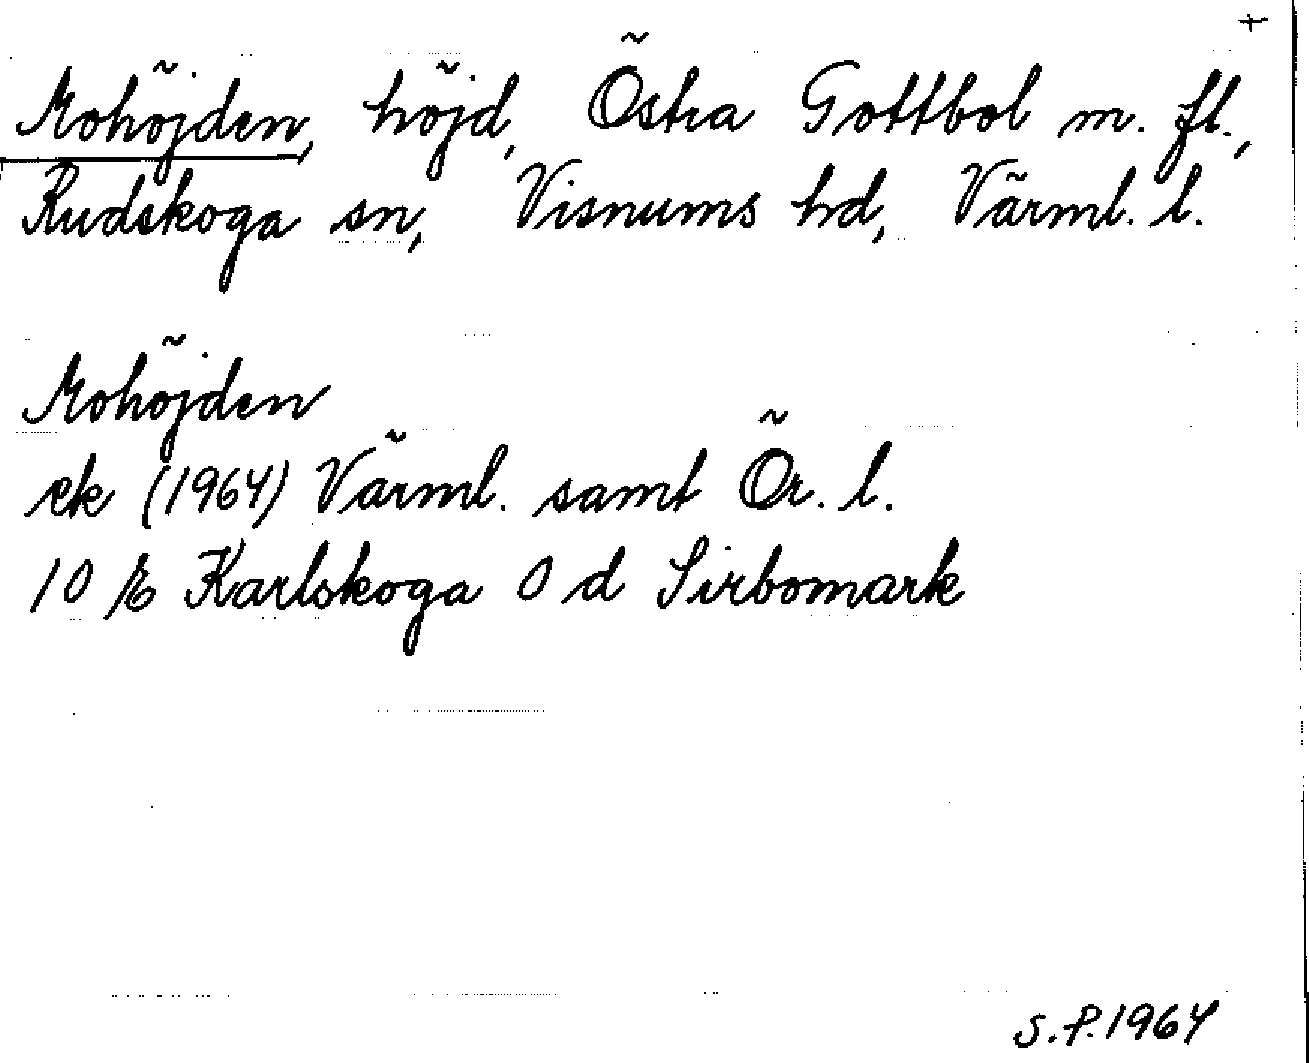 +
Mohöjden, höjd, Östra Gottbol m. fl.,
Rudskoga sn, Visnums hd, Värml. l.
Mohöjden
ek (1964) Värml. samt Ör. l.
10 E Karlskoga 0 d Sirbomark
S.P. 1964